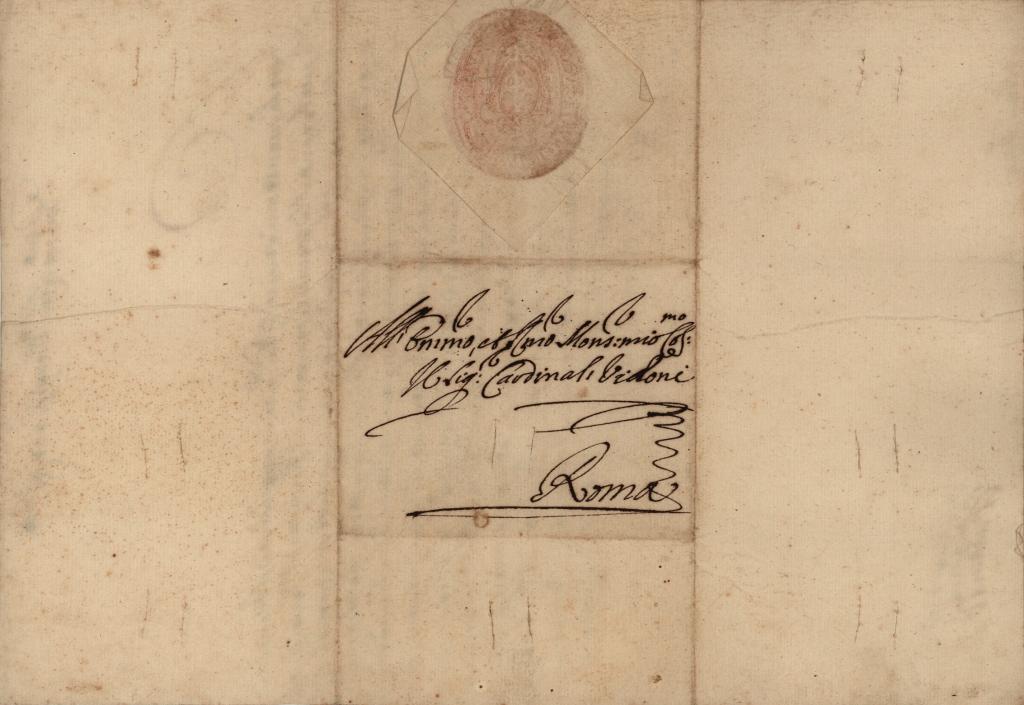 All Em.mo, et R.mo Mons: mio Col:mo
Il Sig: Cardinal: Vidoni
Roma